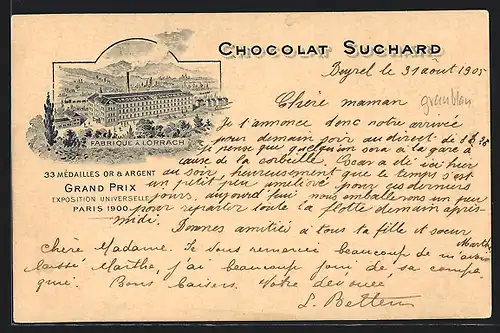 CHOCOLAT SUCHARD
FABRIQUE A LORRACH
33 MÉDAILLES OR & ARGENT
GRAND PRIX
EXPOSITION UNIVERSELLE
PARIS 1900
le 31 août 1905
Chère maman
Je t'annonce donc notre arrivée
pour demain soir au direct de
je pense que quelqu'un sera à la gare à
cause de la corbeille. Oscar a été ici hier
au soir, heureusement que le temps s'est
un petit peu amélioré pour ces derniers
jours, aujourd'hui nous emballerons un peu
pour repartir toute la flotte demain après-
midi.
Bonnes amitiés à tous ta fille et soeur
Marthe
Chère Madame. Je vous remercie beaucoup de m'avoir
laissé Marthe, j'ai beaucoup joui de sa compa
gnie. Bons baisers. Votre dévouée